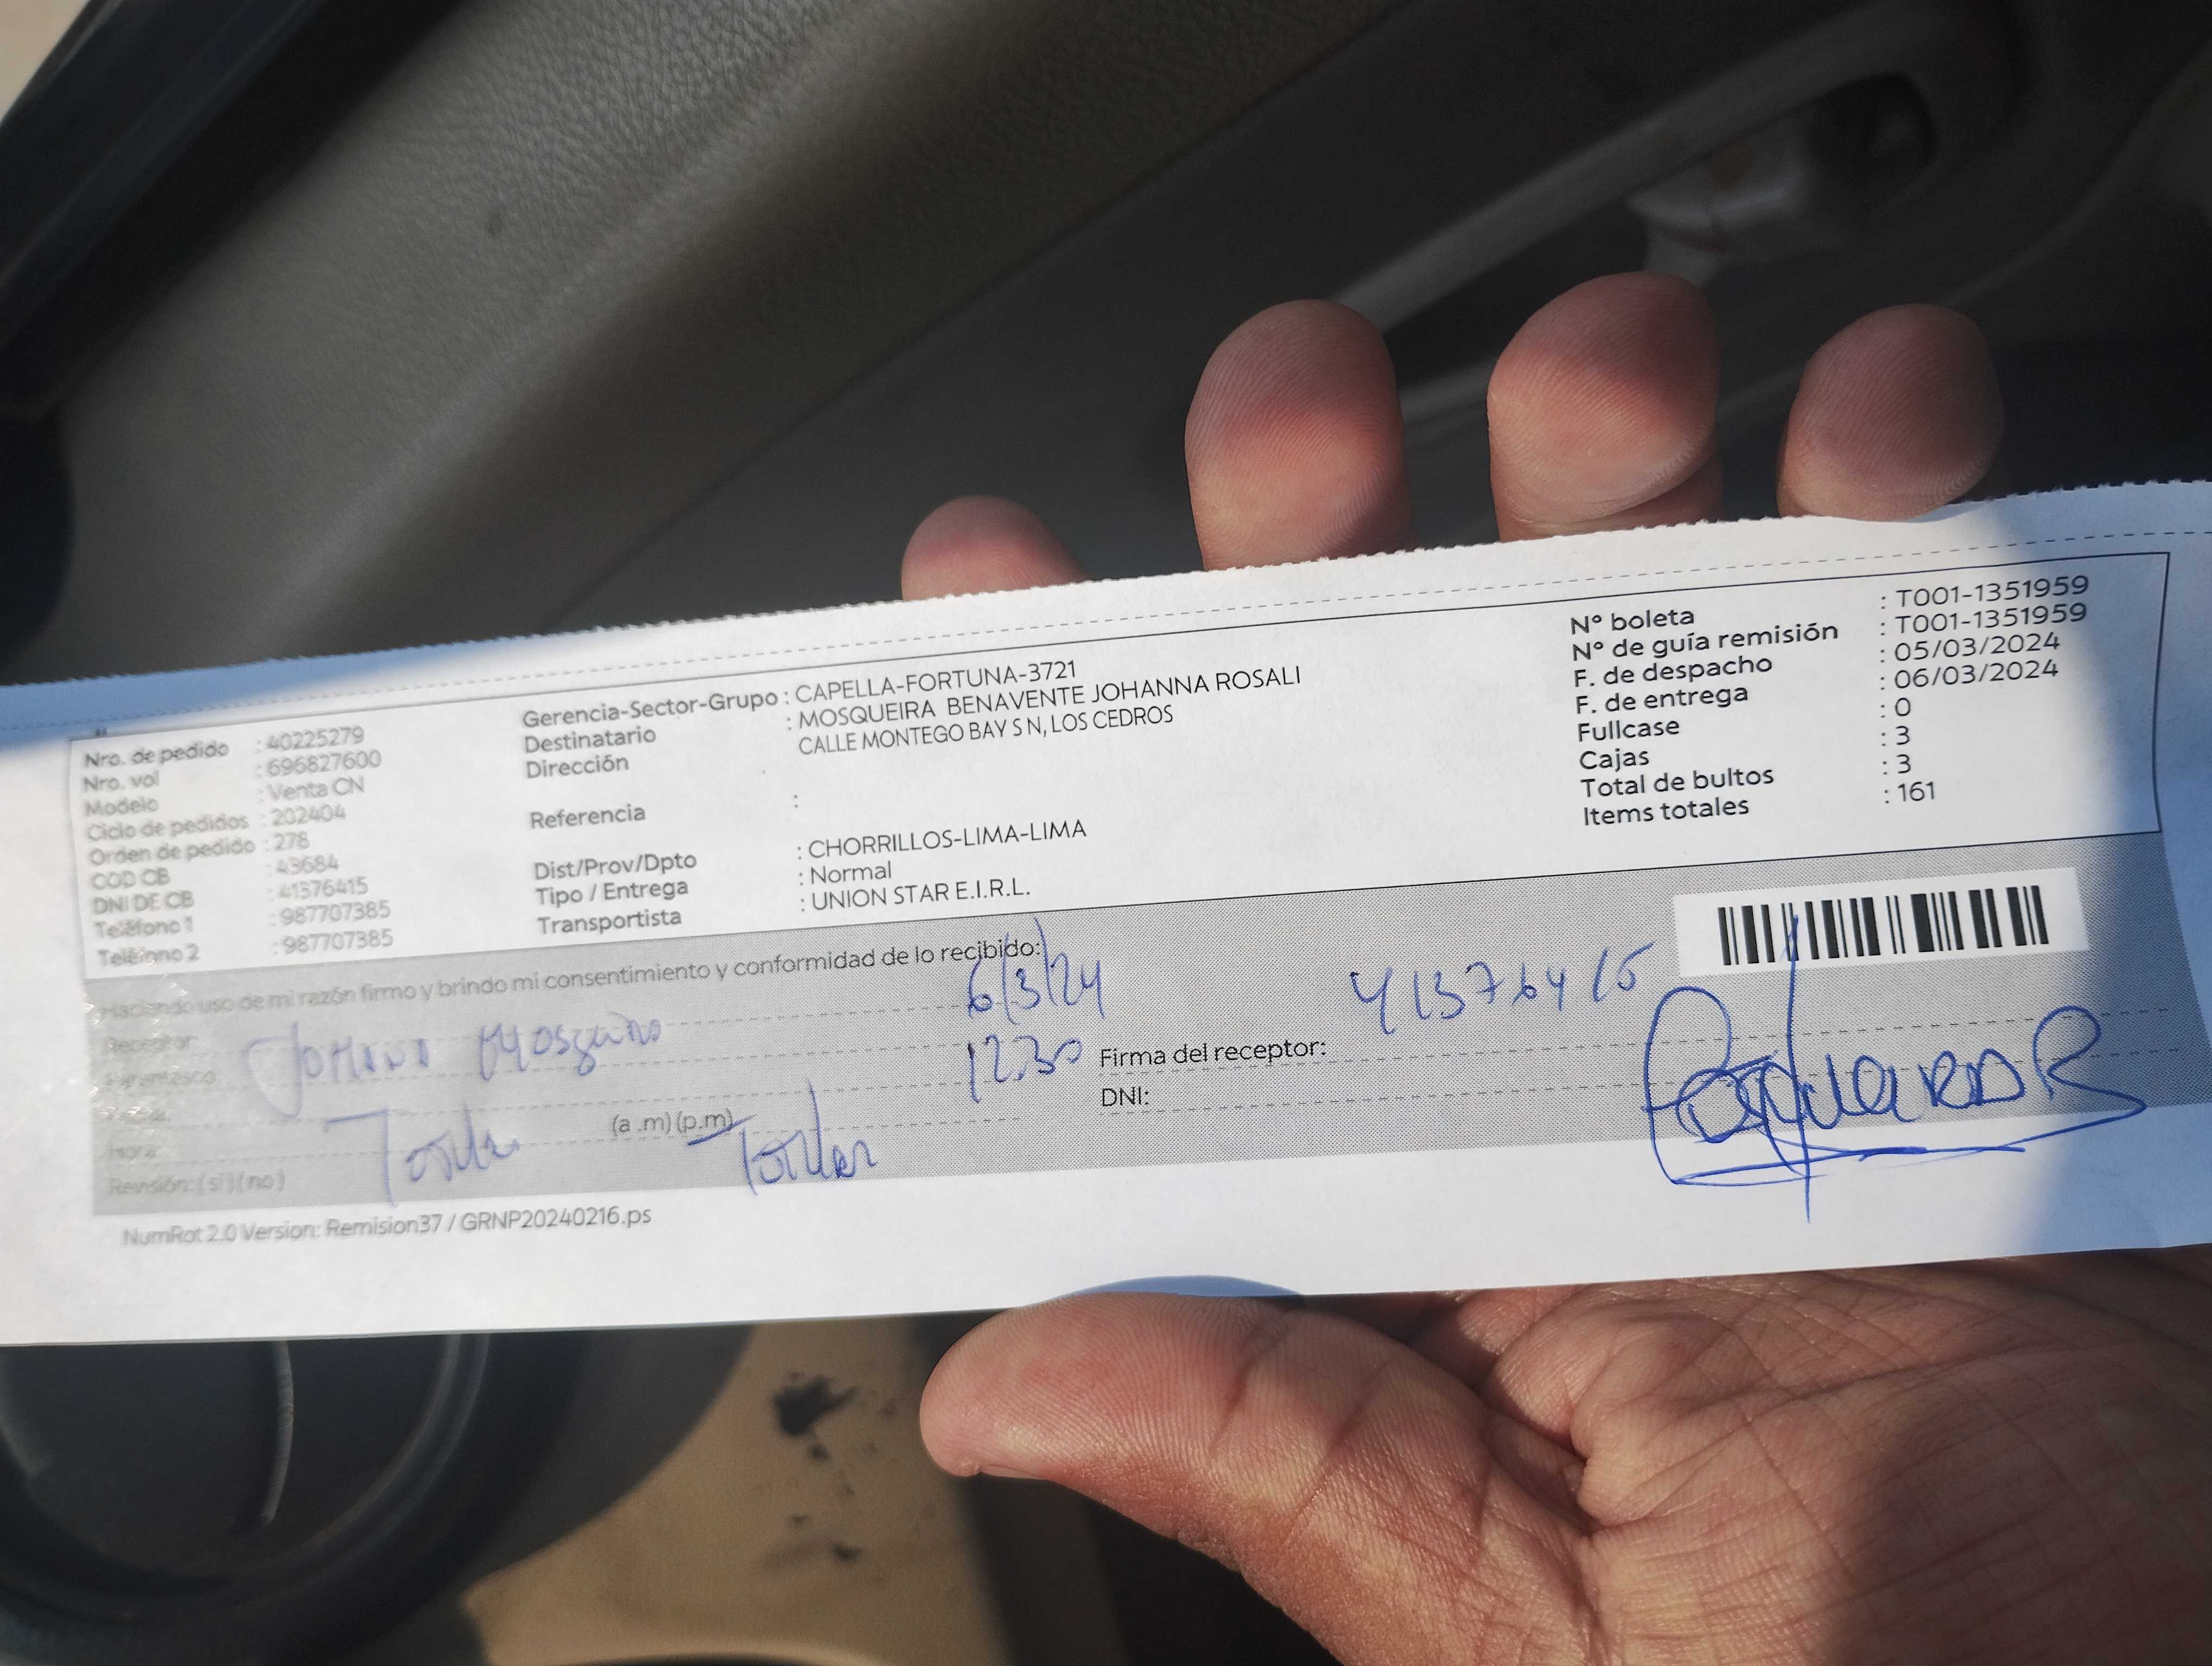 Nro. de pedido : 40225279
Nro. vol : 696827600
Modelo : Venta CN
Ciclo de pedidos : 202404
Orden de pedido : 278
COD CB : 43684
DNI DE CB : 41376415
Teléfono 1 : 987707385
Teléfono 2 : 987707385
Gerencia-Sector-Grupo : CAPELLA-FORTUNA-3721
Destinatario : MOSQUEIRA BENAVENTE JOHANNA ROSALI
Dirección CALLE MONTEGO BAY S N, LOS CEDROS
Referencia :
Dist/Prov/Dpto : CHORRILLOS-LIMA-LIMA
Tipo / Entrega : Normal
Transportista : UNION STAR E.I.R.L.
N° boleta : T001-1351959
N° de guía remisión : T001-1351959
F. de despacho : 05/03/2024
F. de entrega : 06/03/2024
Fullcase : 0
Cajas : 3
Total de bultos : 3
Items totales : 161
Haciendo uso de mi razón firmo y brindo mi consentimiento y conformidad de lo recibido:
Receptor: 6/3/24 41376415
Parentesco: 12:30 Firma del receptor:
Fecha: DNI:
Hora: (a .m) (p.m)
Revisión: (si) (no)
NumRot 2.0 Version: Remision37 / GRNP20240216.ps